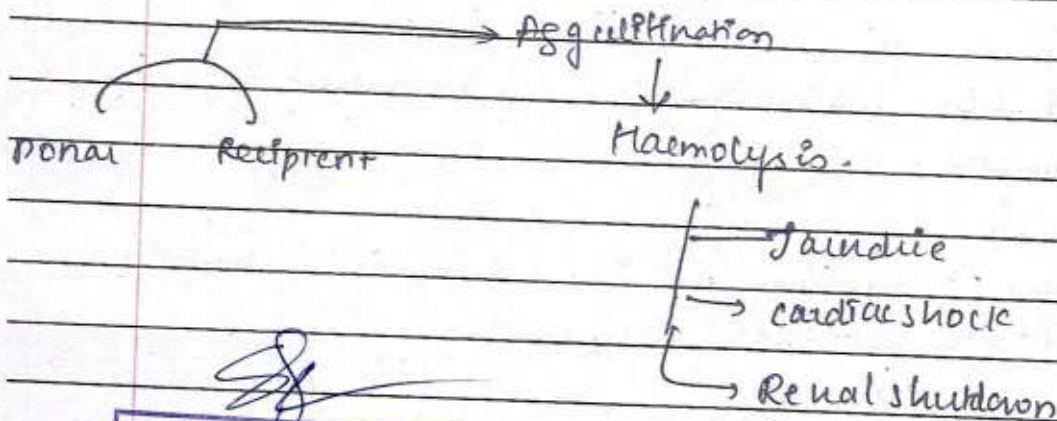 Aggullitination
Donai Reciprent
Haemolysis.
Jaundiie
cardiac shock
Renal shutdown